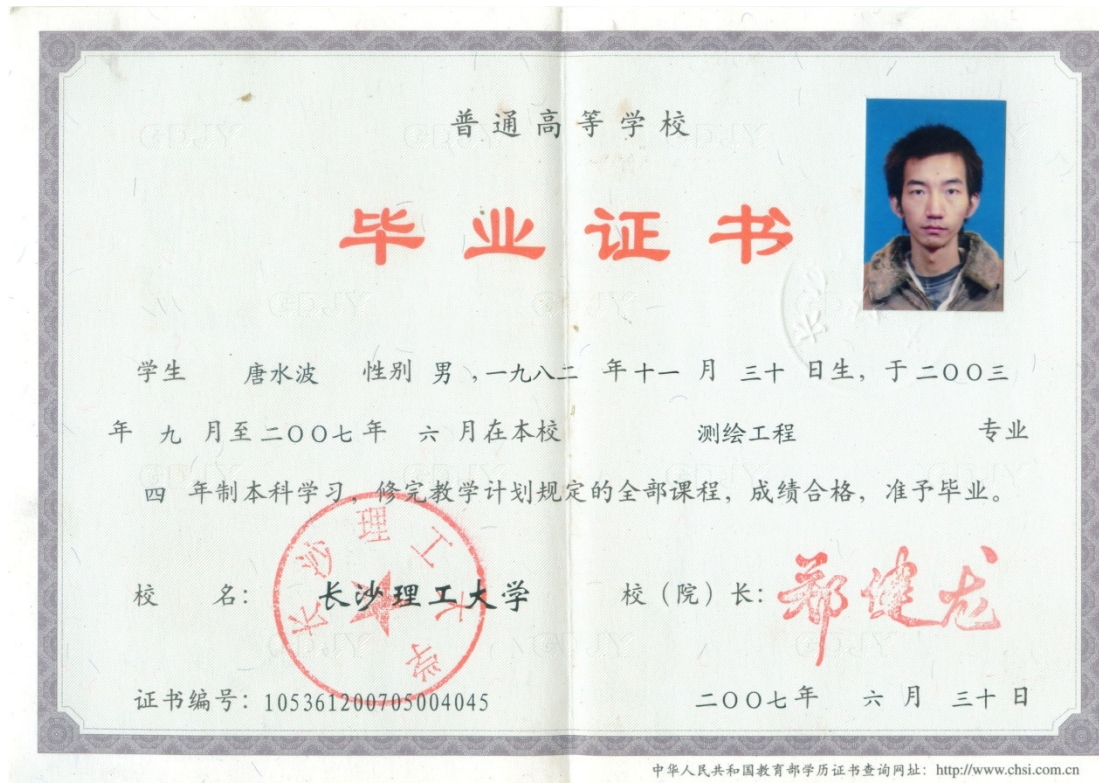 普通高等学校
毕业证书
学生 唐水波 性别 男 ,一九八二 年十一 月 三十 日生, 于二〇〇三
年 九 月至二〇〇七年 六 月在本校 测绘工程 专业
四 年制本科学习, 修完教学计划规定的全部课程, 成绩合格, 准予毕业。
校 名: 长沙理工大学 校(院)长: 郑健龙
长沙理工大学
证书编号: 105361200705004045 二〇〇七年 六 月 三十 日
中华人民共和国教育部学历证书查询网址: http://www.chsi.com.cn